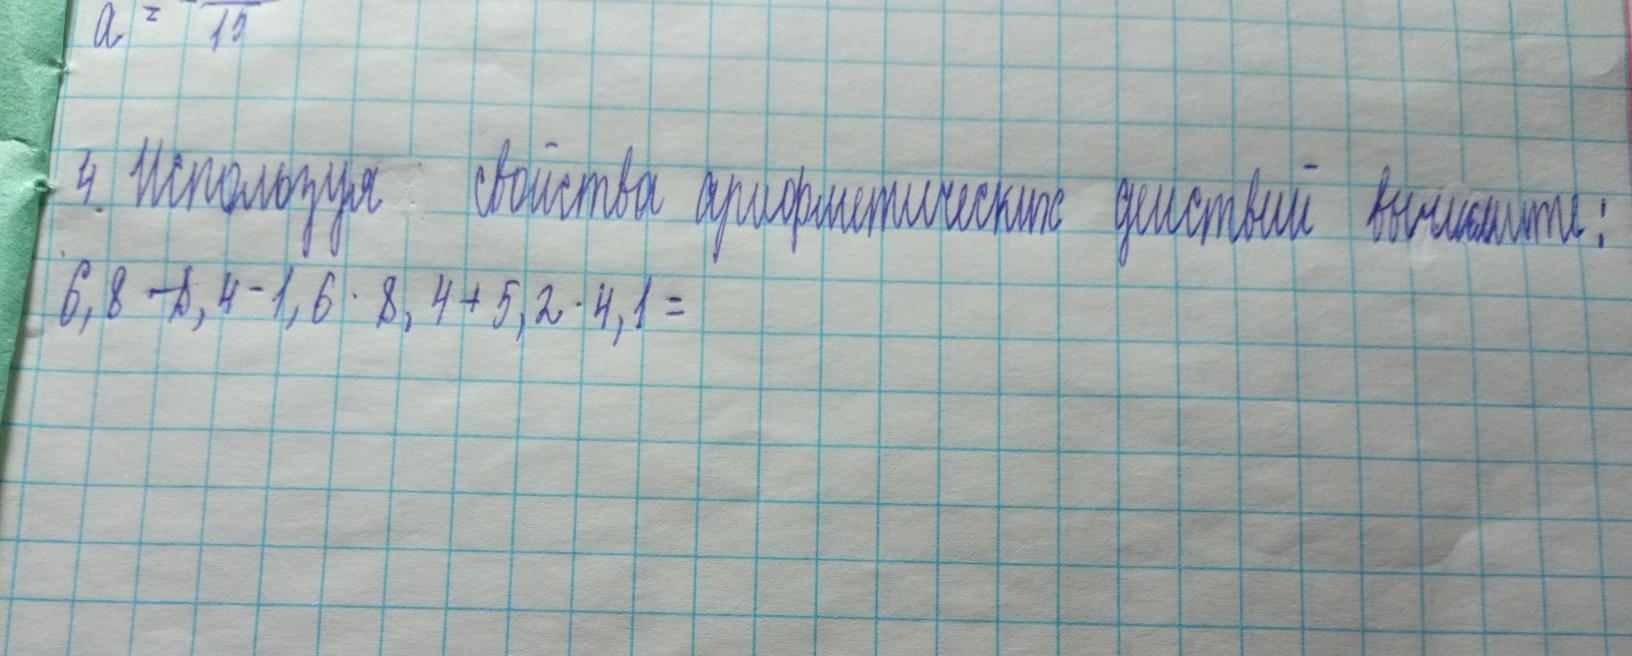 a = - 15
4. Используя свойства арифметических действий вычислите:
6,8 - 8,4 - 1,6 · 8,4 + 5,2 · 4,1 =